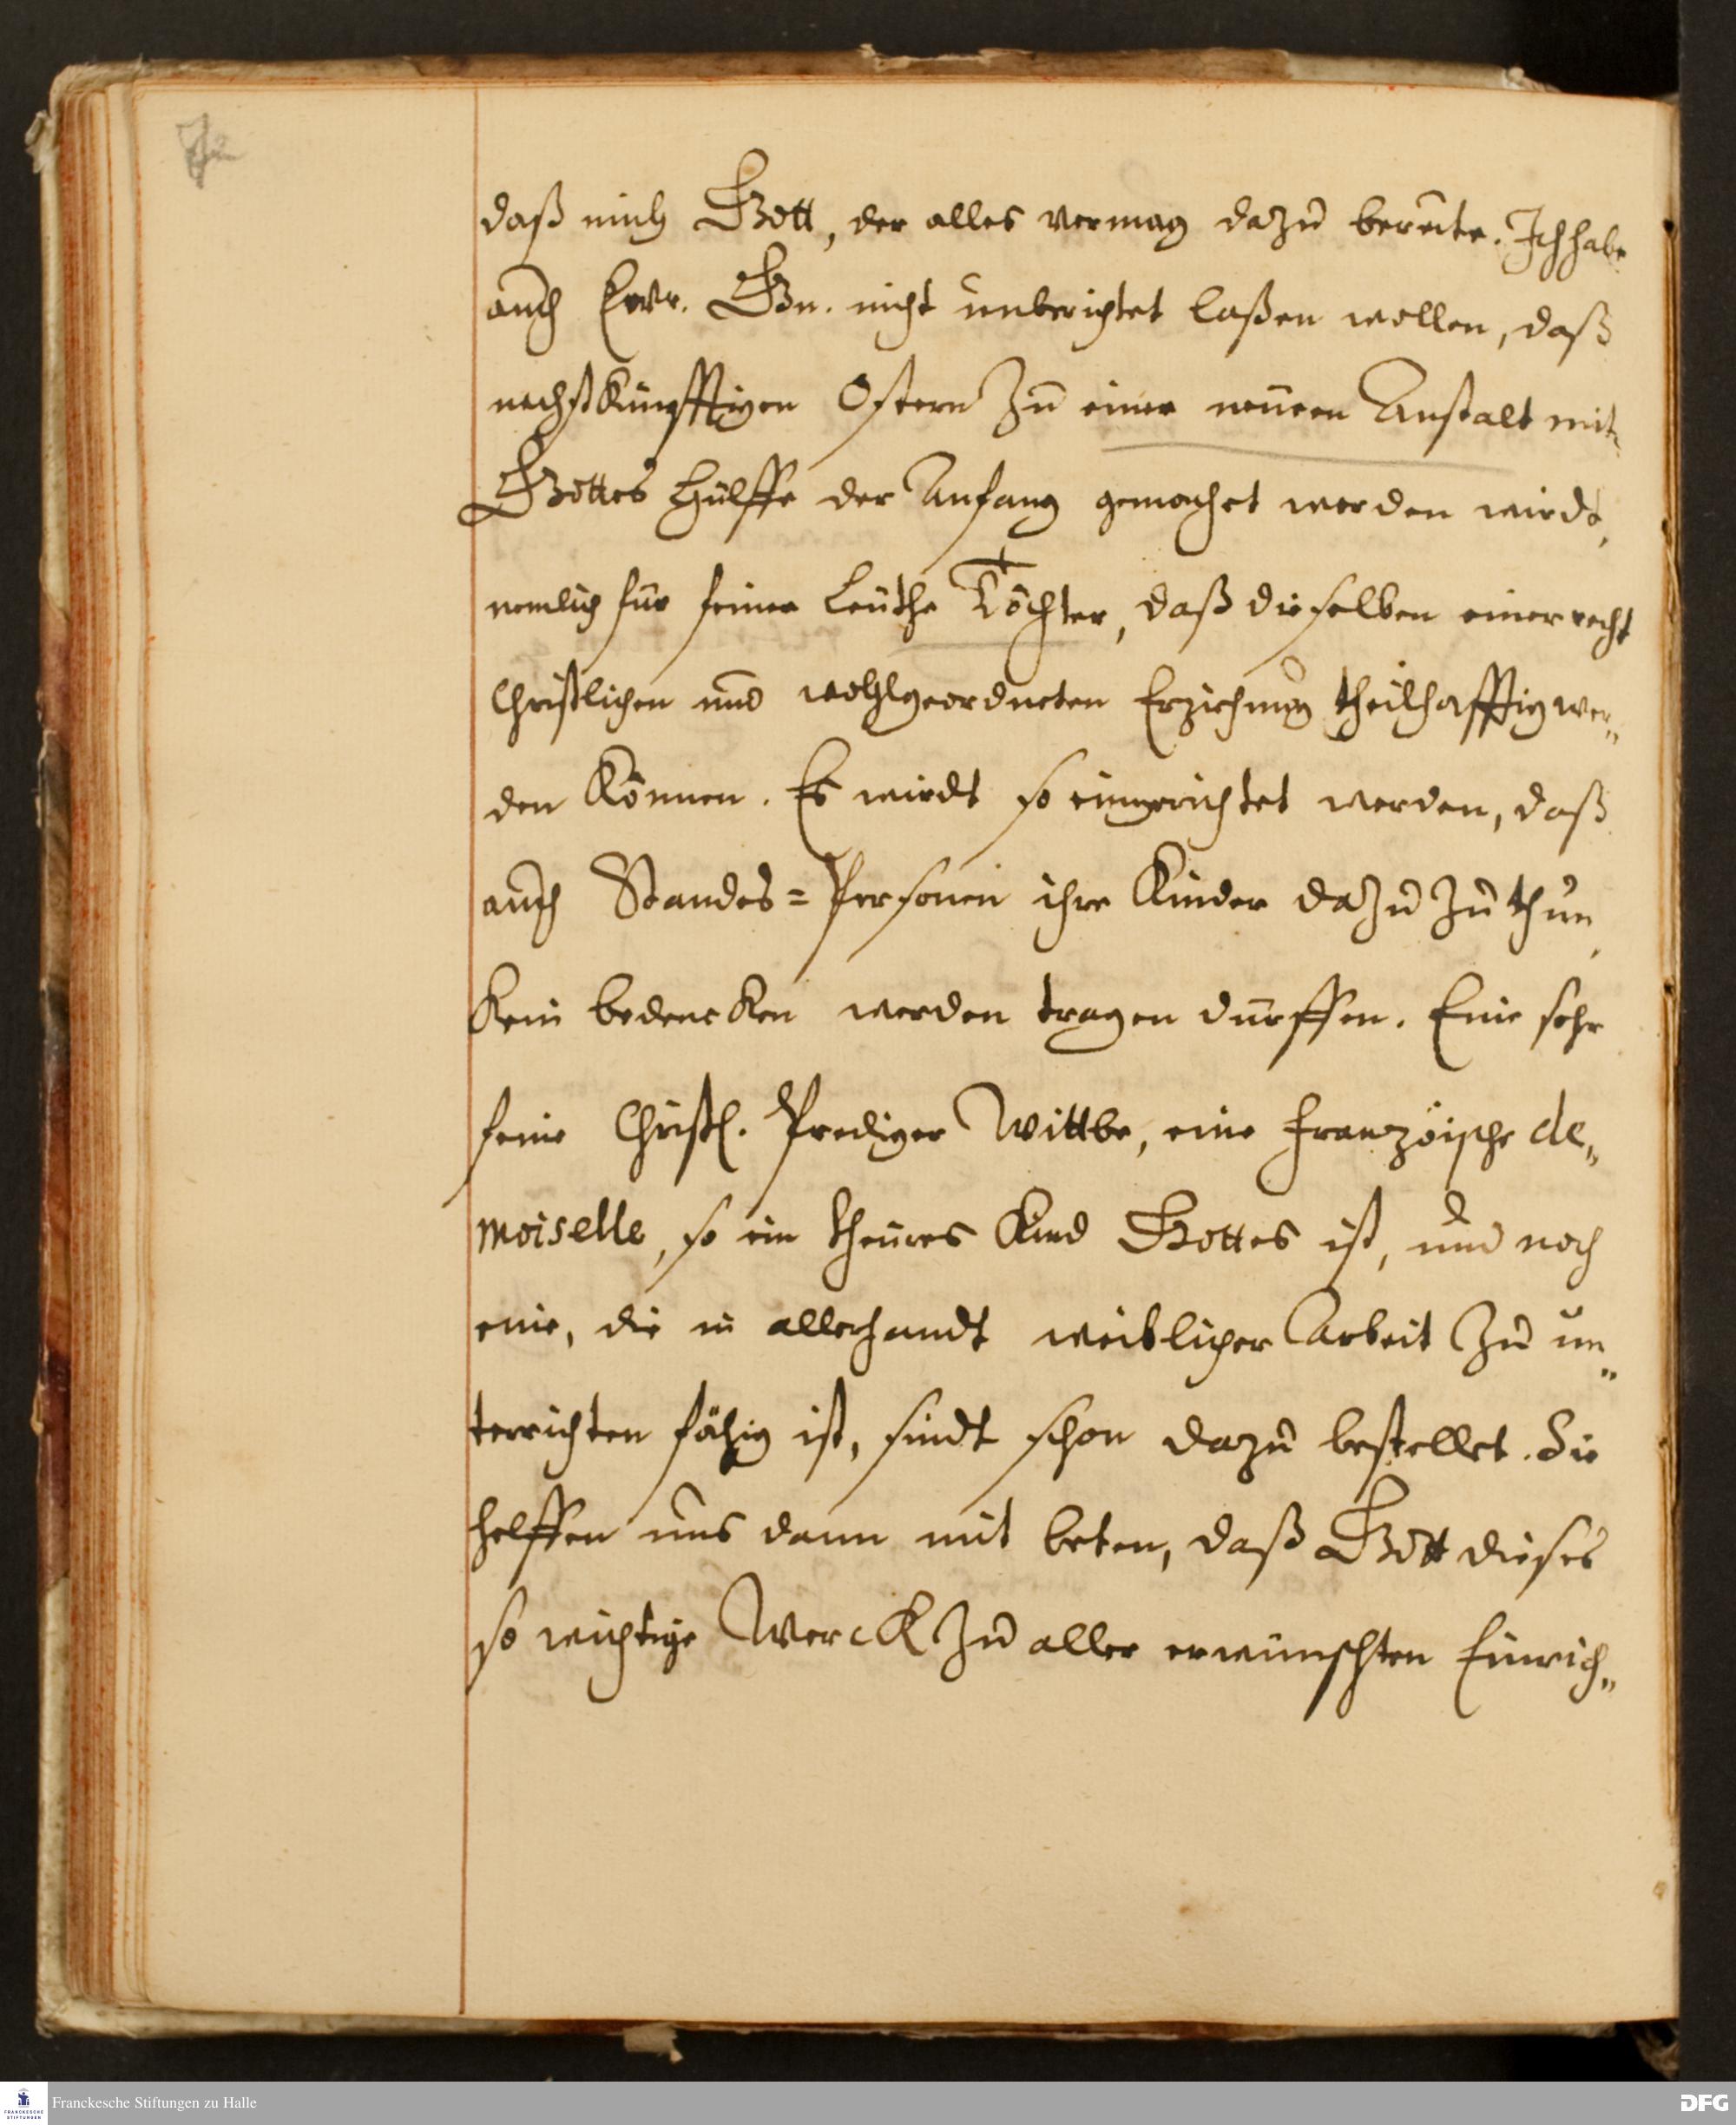 daß mich Gott, der alles vermag dazu bereite. Ich habe
auch Ewr. Gn. nicht unberichtet laßen wollen, daß
nechstkünfftigen Ostern zu einer neuen Anstalt mit
Gottes Hülffe der Anfang gemachet werden wirdt,
nemlich für feiner Leuthe Töchter, daß dieselben einer recht
Christlichen und wohlgeordneten Erziehung theilhafftig wer„
den können. Es wirdt so eingerichtet werden, daß
auch Standes=Personen ihre Kinder dazu zu thun
kein bedencken werden tragen dürffen. Eine sehr
feine Christl. Prediger Wittbe, eine Französche de„
moiselle, so ein theures Kind Gottes ist, und noch
eine, die in allerhandt weiblicher Arbeit zu un„
terrichten fähig ist, sindt schon dazu bestellet. Sie
helffen uns dann mit beten, daß Gott dieses
so wichtige Werck zu aller erwünschten Einrich„
Franckesche Stiftungen zu Halle
FRANCKESCHE
STIFTUNGEN
DFG